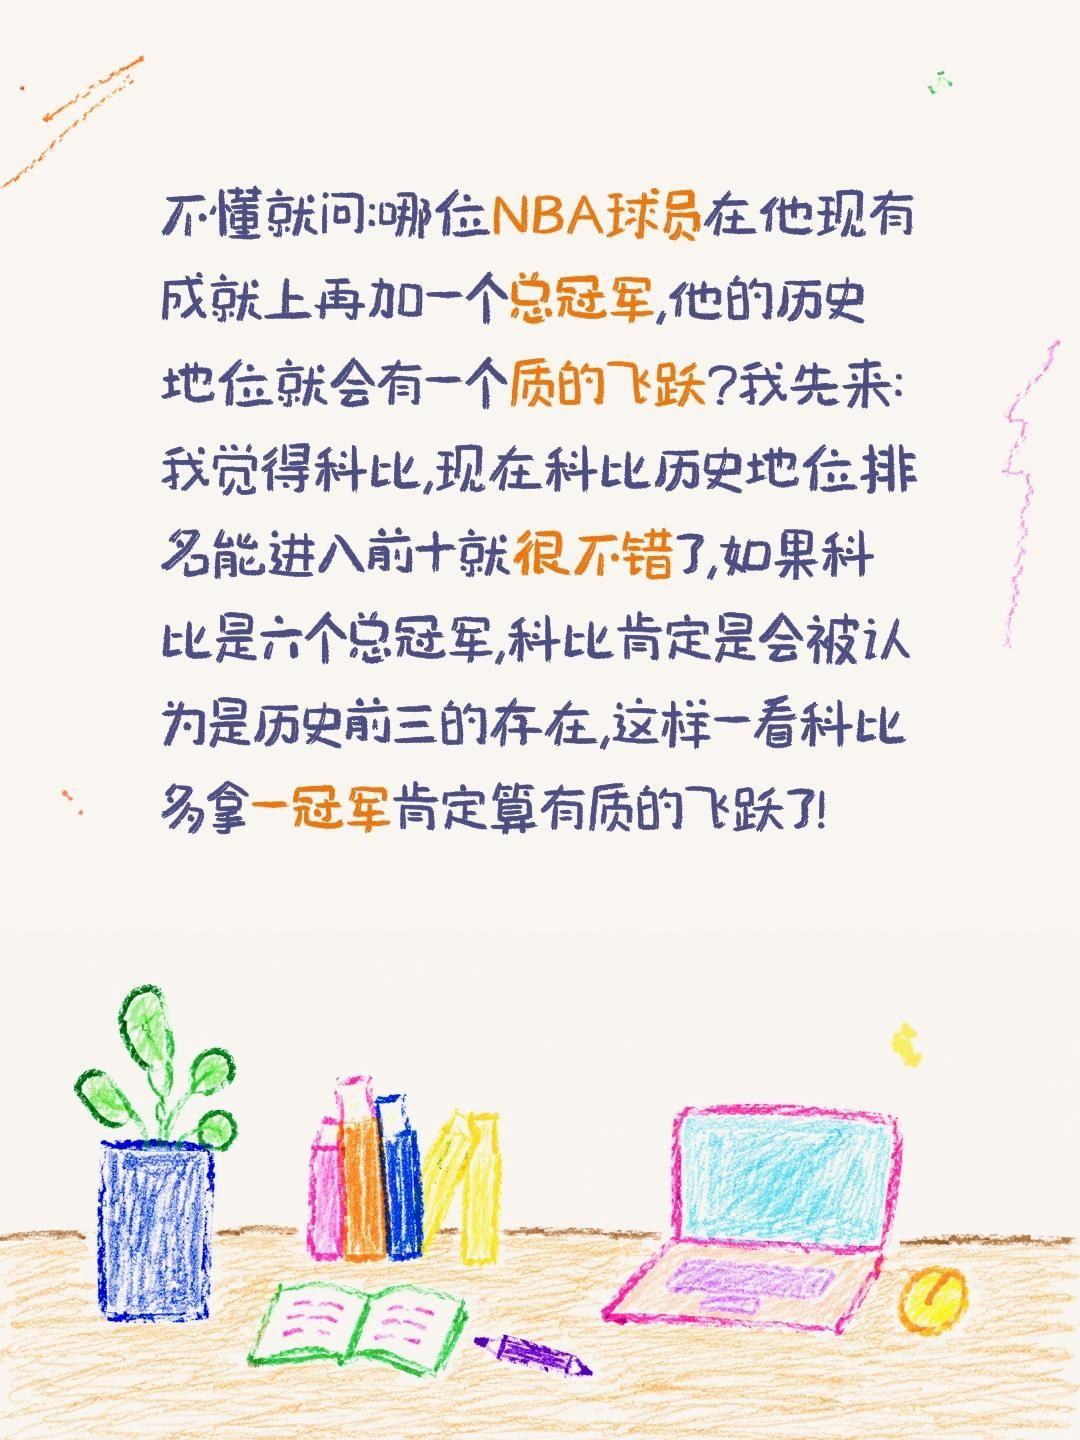 不懂就问:哪位NBA球员在他现有
成就上再加一个总冠军,他的历史
地位就会有一个质的飞跃?我先来:
我觉得科比,现在科比历史地位排
名能进入前十就很不错了,如果科
比是六个总冠军,科比肯定是会被认
为是历史前三的存在,这样一看科比
多拿一冠军肯定算有质的飞跃了!